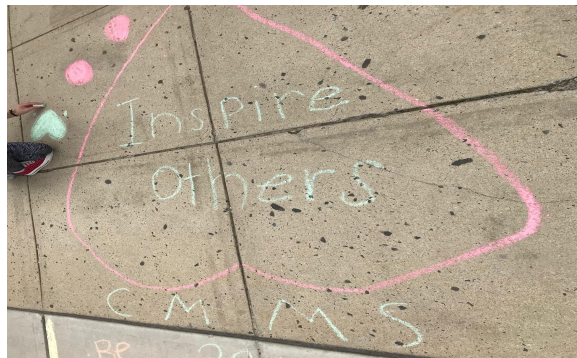 Inspire
others
CMMS
BP